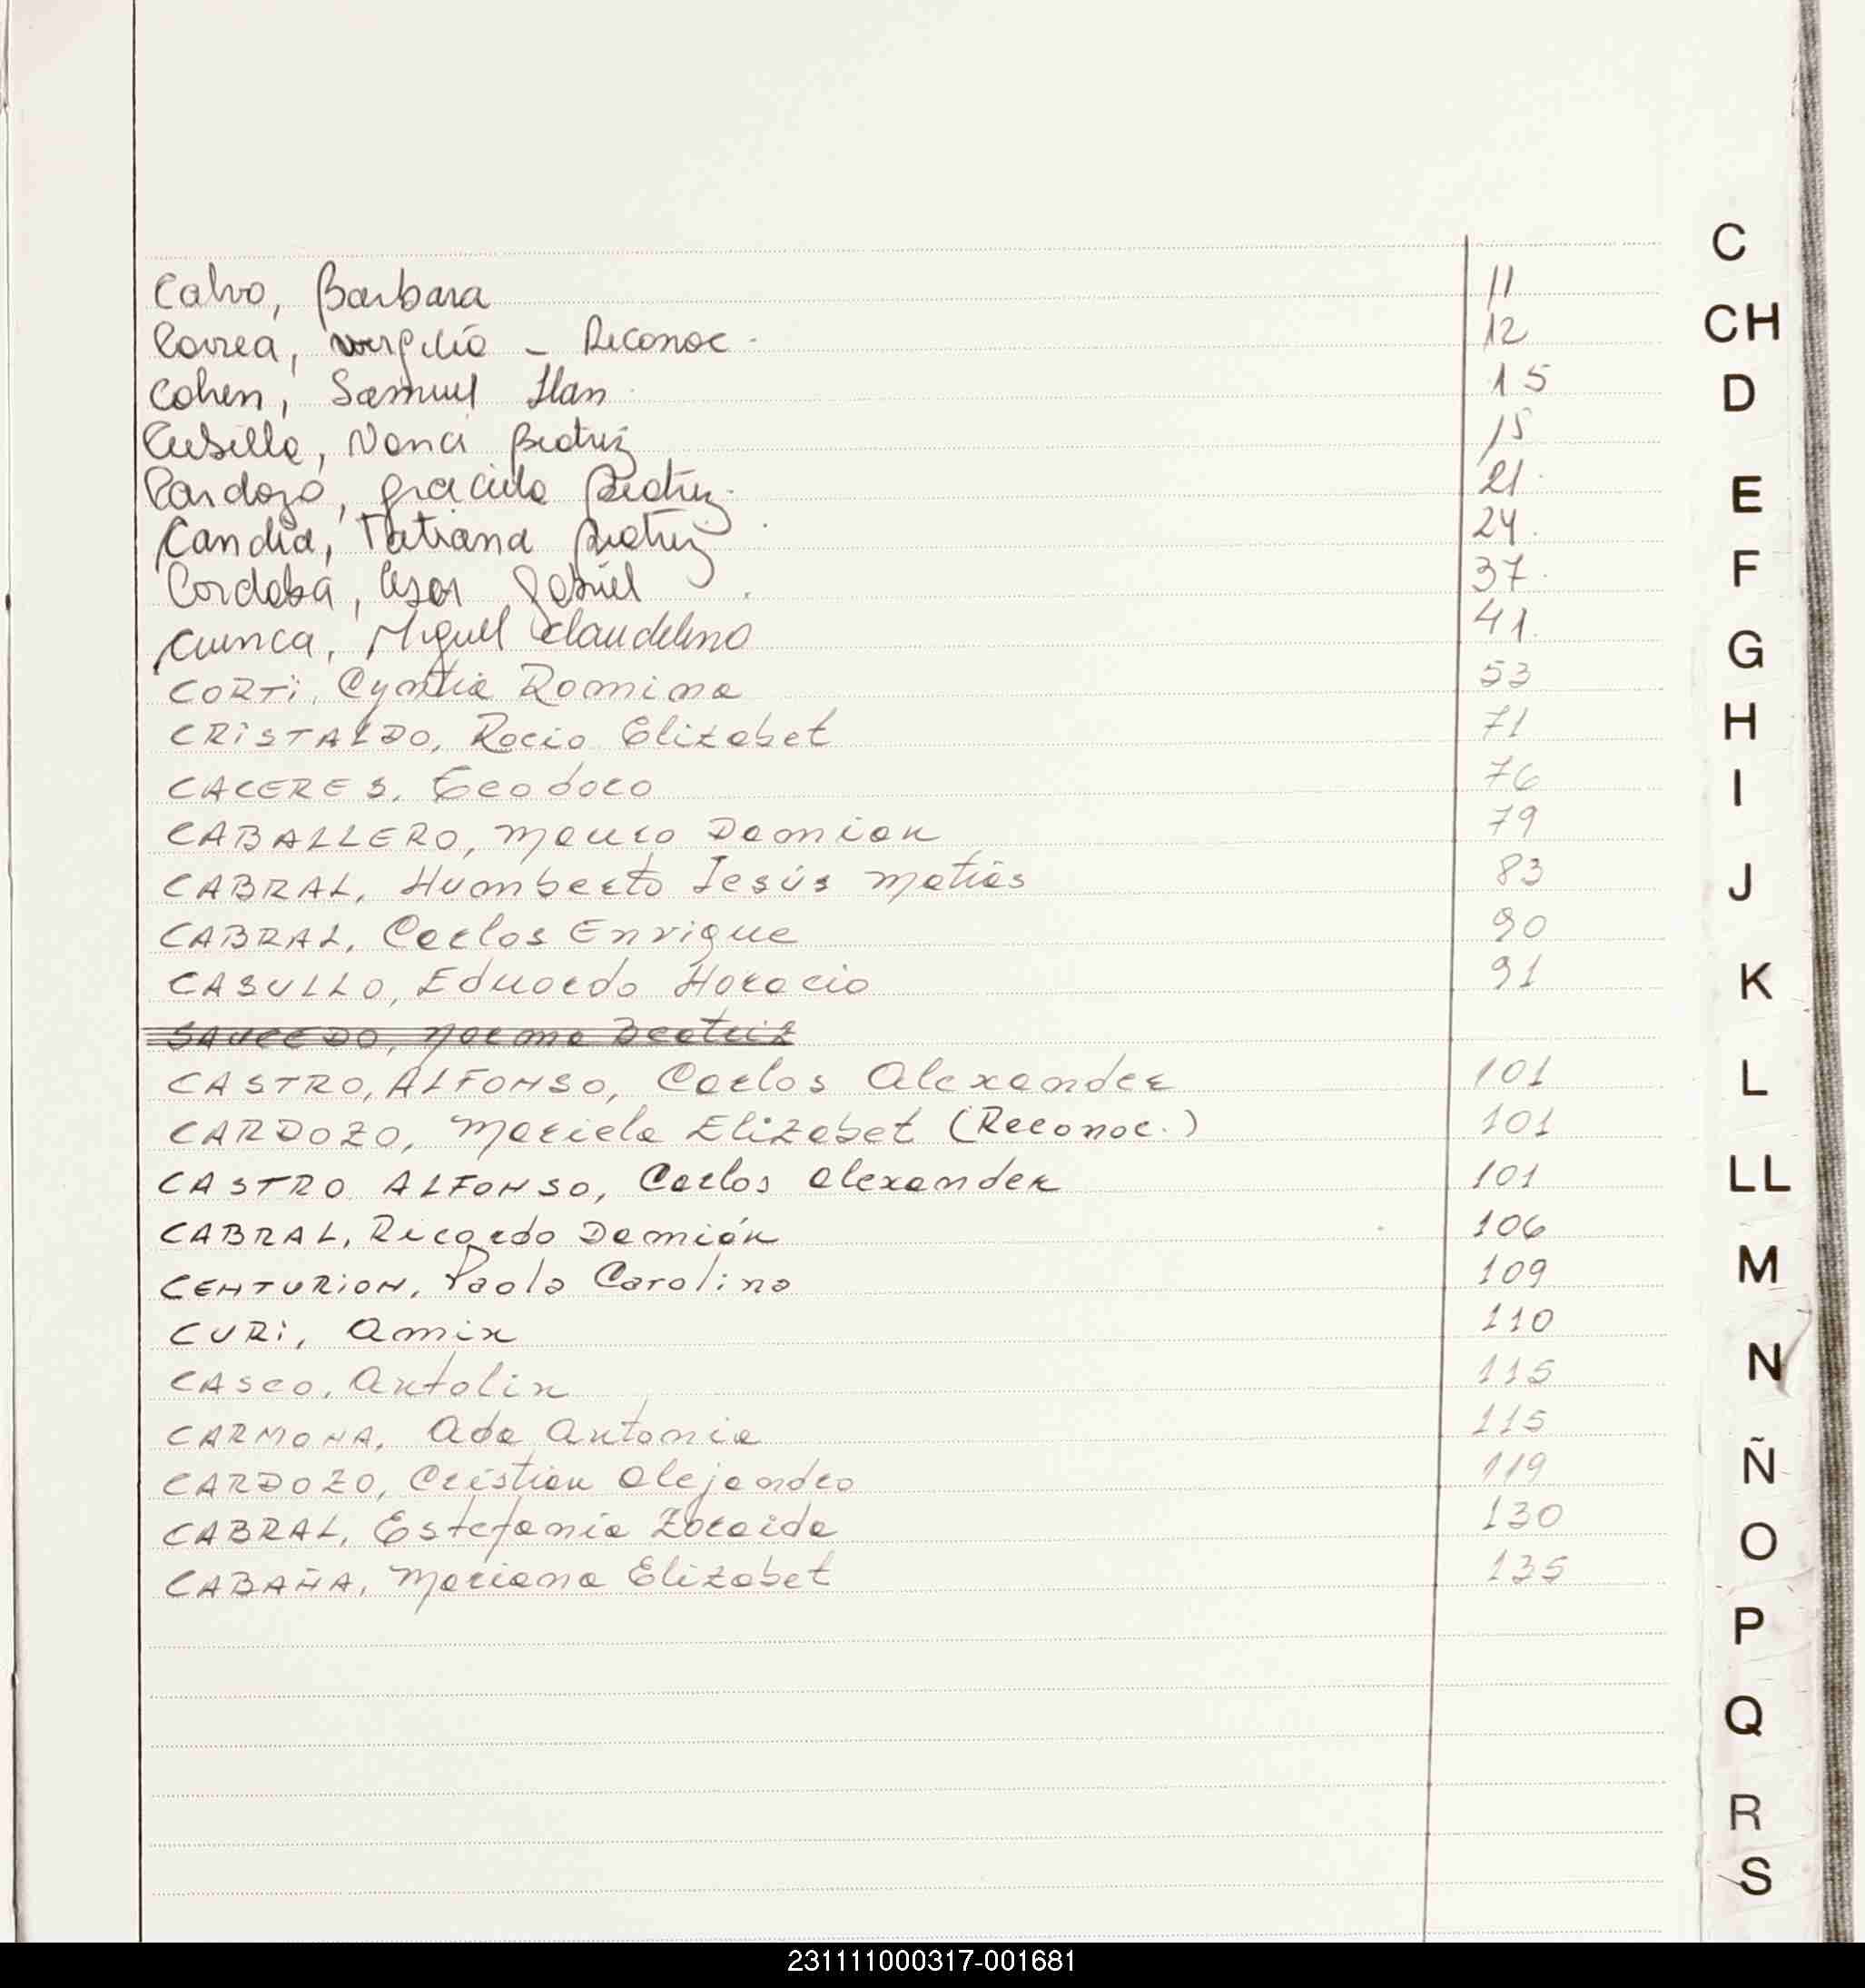 Calvo, Barbara 11
Correa, Virgilio - Reconoc. 12
Cohen, Samuel Ilan 15
Cubilla, Nanci Beatriz 15
Cardozo, Graciela Beatriz. 21.
Candia, Tatiana Beatriz. 24.
Cordoba, Cesar Gabriel. 37.
Cuenca, Miguel Claudelino 41.
CORTI, Cyntia Romina 53
CRISTALDO, Rocio Elizabet 71
CACERES, Teodoro 76
CABALLERO, Mauro Damian 79
CABRAL, Humberto Jesús Matías 83
CABRAL, Carlos Enrique 90
CASULLO, Eduardo Horacio 91
SAUCEDO, Norma Beatriz
CASTRO, ALFONSO, Carlos Alexander 101
CARDOZO, Mariela Elizabet (Reconoc.) 101
CASTRO ALFONSO, Carlos Alexander 101
CABRAL, Ricardo Damián 106
CENTURION, Paola Carolina 109
CURI, Amin 110
CASCO, Antolin 115
CARMONA, Ada Antonia 115
CARDOZO, Cristian Alejandro 119
CABRAL, Estefanía Zoraida 130
CABAÑA, Mariana Elizabet 135
C
CH
D
E
F
G
H
I
J
K
L
LL
M
N
Ñ
O
P
Q
R
S
231111000317-001681